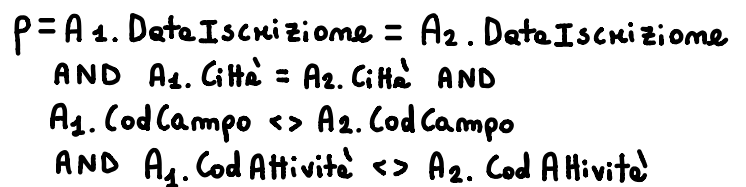 p = A1. DataIscrizione = A2. DataIscrizione
AND A1. Città = A2. Città AND
A1. CodCampo <> A2. CodCampo
AND A1. CodAttività <> A2. CodAttività